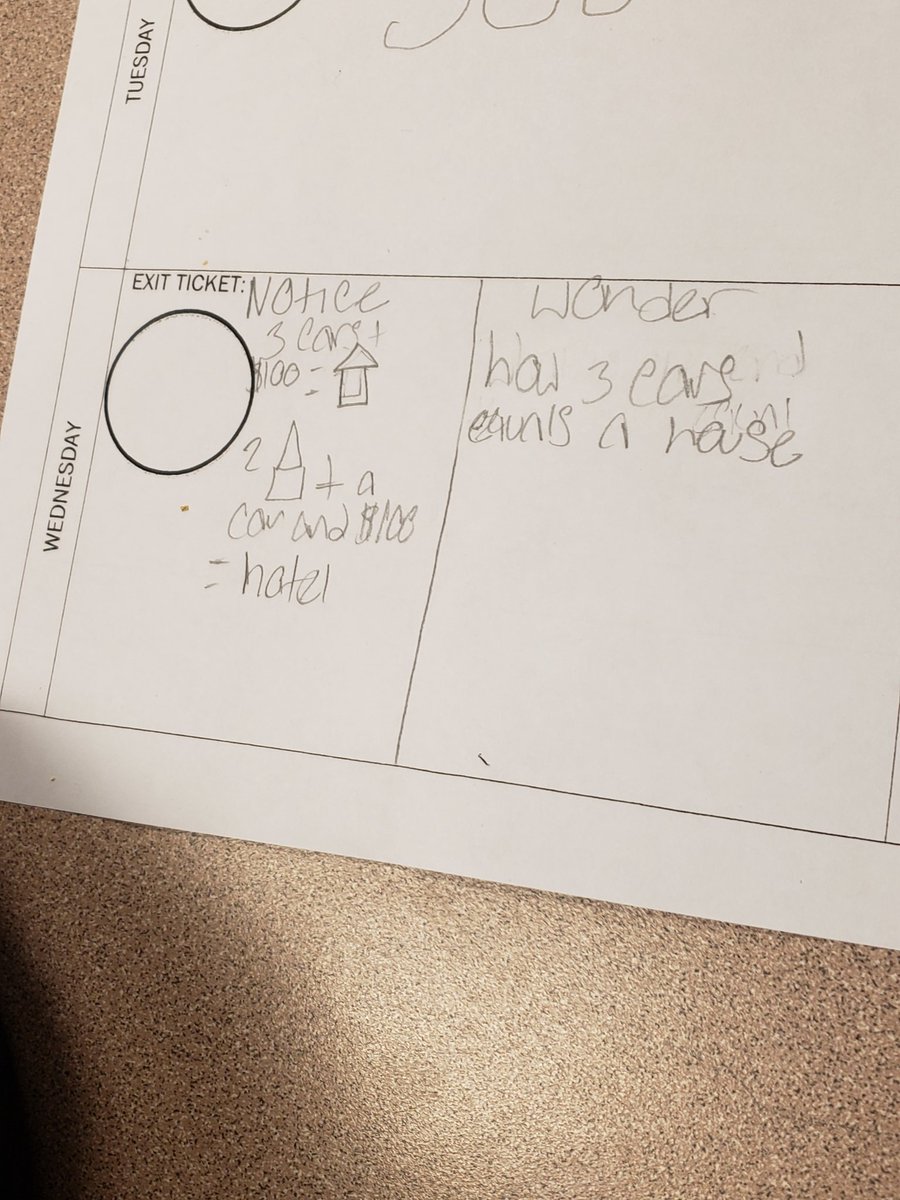 TUESDAY
WEDNESDAY
EXIT TICKET:
Notice
3 cars +
$100 =
2 + a
car and $100
= hotel
Wonder
how 3 cars
equals a house